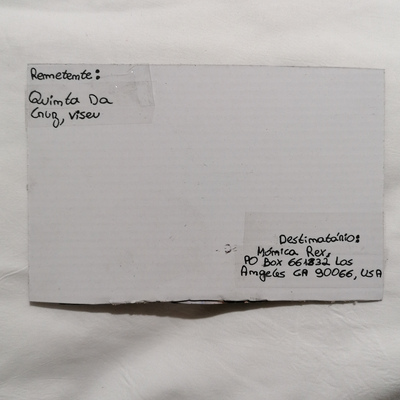 Remetente:
Quinta Da
Cruz, viseu
Destinatário:
Mónica Rex,
PO Box 661832 Los
Angeles CA 90066, USA